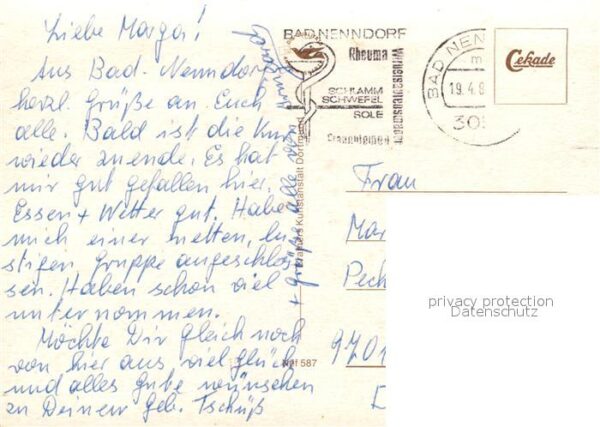 Liebe Marga!
Aus Bad-Nenndorf
herzl. Grüße an Euch
alle. Bald ist die Kur
wieder zuende. Es hat
mir gut gefallen hier.
Essen + Wetter gut. Habe
mich einer netten, lu-
stigen Gruppe angeschlos-
sen. Haben schon viel
unternommen.
Möchte Dir gleich noch
von hier aus viel Glück
und alles Gute wünschen
zu Deinem Geb. Tschüß
+ Grüße alle von
BAD NENNDORF
Rheuma
Wirbelsäulen
SCHLAMM
SCHWEFEL
SOLE
Frauenleiden
BAD NEN
19.4.8
305
Cekade
Kunstanstalt Dortmund
587
Frau
Mar
Pech
8701
privacy protection
Datenschutz